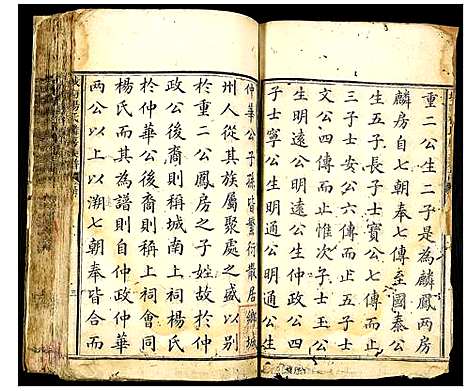 重二公生二子是為麟鳳兩房
麟房自七朝奉七傳至國泰公
生五子長子士寶公七傳而止
次子士安公六傳而止五子士
文公四傳而止惟次子士玉公
生明遠公明遠公生仲政公士
生明通公明通公生
仲華公子孫皆繁衍散居鄉城
州人從其族屬聚處之盛以別
於重二公鳳房之子姓故於仲
政公後裔則稱城南上祠楊氏
於仲華公後裔則稱上祠會同
楊氏而其為譜則自仲政仲華
兩公以上溯七朝奉皆合而
城南楊氏